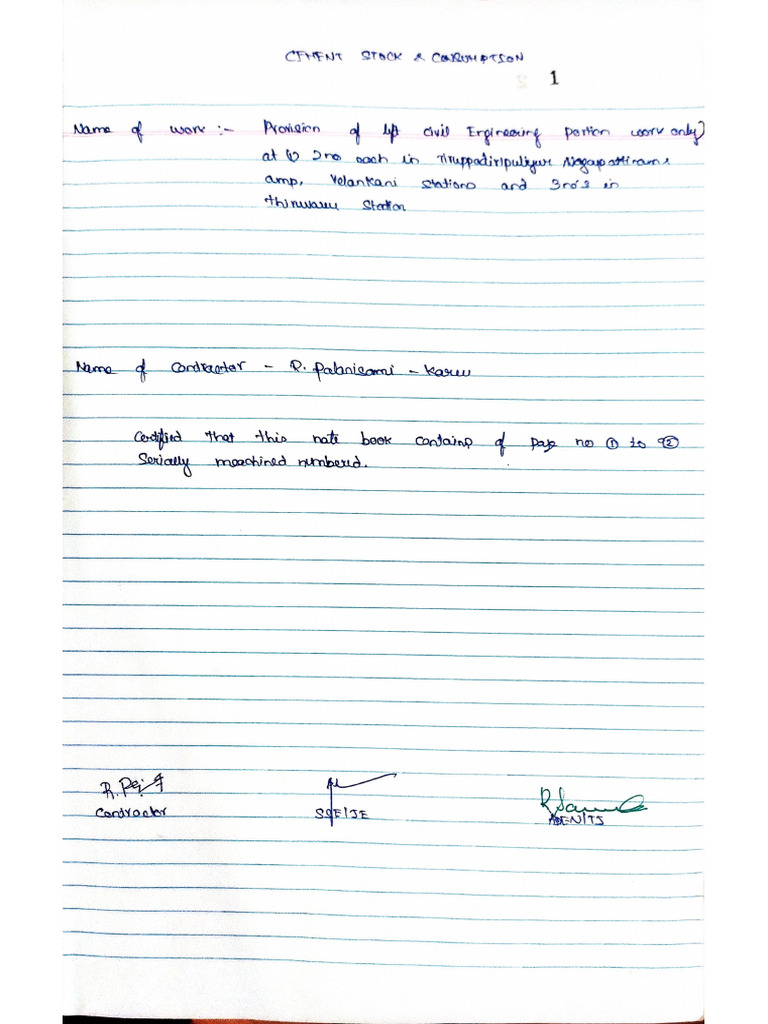 CEMENT STOCK & CONSUMPTION
1
Name of work :- Provision of lift civil Engineering portion work only)
at (1) 2no each in Tiruppadiripuliyur Nagapattinam &
amp, Velankani stations and 3no's in
Station
Name of Contractor - R. Palanisami - Karur
Certified that this note book contains of page no ① to 92
Serially meachined numbered.
Contractor
SSE/JE
ADEN/TJ